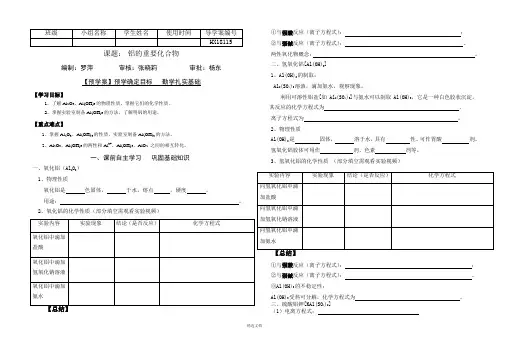 班级 小组名称 学生姓名 使用时间 导学案编号
HX18115
课题： 铝的重要化合物
编制：罗萍 审核：张晓莉 审批：杨东
【预学案】预学确定目标 勤学扎实基础
【学习目标】
1、了解 Al₂O₃、Al(OH)₃的物理性质，掌握它们的化学性质。
2、掌握实验室制备 Al(OH)₃的方法，了解明矾的用途。
【重点难点】
1、掌握 Al₂O₃、Al(OH)₃的性质，实验室制备 Al(OH)₃的方法。
2、Al₂O₃、Al(OH)₃的两性和 Al³⁺、Al(OH)₃、AlO₂⁻之间的相互转化。
一、课前自主学习 巩固基础知识
一、氧化铝（Al₂O₃）
1、物理性质
氧化铝是 色固体， 于水，熔点 ，硬度 。
用途： 。
2、氧化铝的化学性质（部分填空需观看实验视频）
实验内容 实验现象 结论（是否反应） 化学方程式
氧化铝中滴加盐酸
氧化铝中滴加氢氧化钠溶液
氧化铝中滴加氨水
【总结】
①与强酸反应（离子方程式）： ；
②与强碱反应（离子方程式）： 。
两性氧化物概念： 。
二、氢氧化铝[Al(OH)₃]
1、Al(OH)₃的制备：
Al₂(SO₄)₃溶液，滴加氨水，观察现象。
利用可溶性铝盐[如 Al₂(SO₄)₃]与氨水可以制取 Al(OH)₃，它是一种白色胶状沉淀。
其反应的化学方程式为 ，
离子方程式为 。
2、物理性质
Al(OH)₃是 固体， 溶于水，具有 性，可作胃酸 剂，
氢氧化铝胶体可用作 剂、色素 剂等。
3、氢氧化铝的化学性质 （部分填空需观看实验视频）
实验内容 实验现象 结论（是否反应） 化学方程式
向氢氧化铝中滴加盐酸
向氢氧化铝中滴加氢氧化钠溶液
向氢氧化铝中滴加氨水
【总结】
①与强酸反应（离子方程式）： ；
②与强碱反应（离子方程式）： ；
③Al(OH)₃的不稳定性：
Al(OH)₃受热可分解，化学方程式为 。
三、硫酸铝钾[KAl(SO₄)₂]
（1）电离方程式：